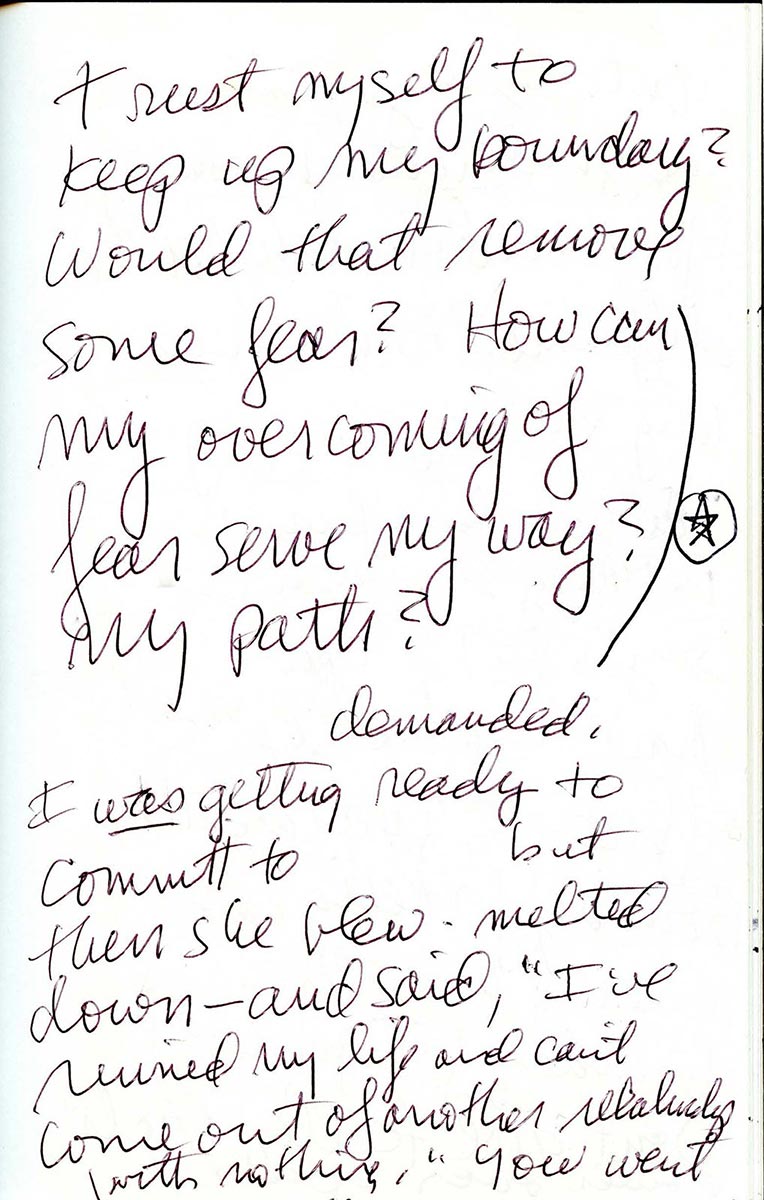 trust myself to
keep up my boundary?
Would that remove
some fear? How can
my overcoming of
fear serve my way?
My path?
demanded.
I was getting ready to
committ to but
then she blew - melted
down—and said, "I've
ruined my life and can't
come out of another relationship
with nothing," you went